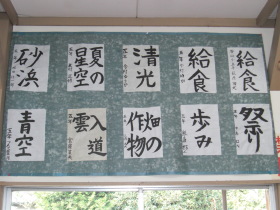 給食
給食
清光
夏の
星空
砂浜
祭り
歩み
畑の
作物
入道
雲
青空